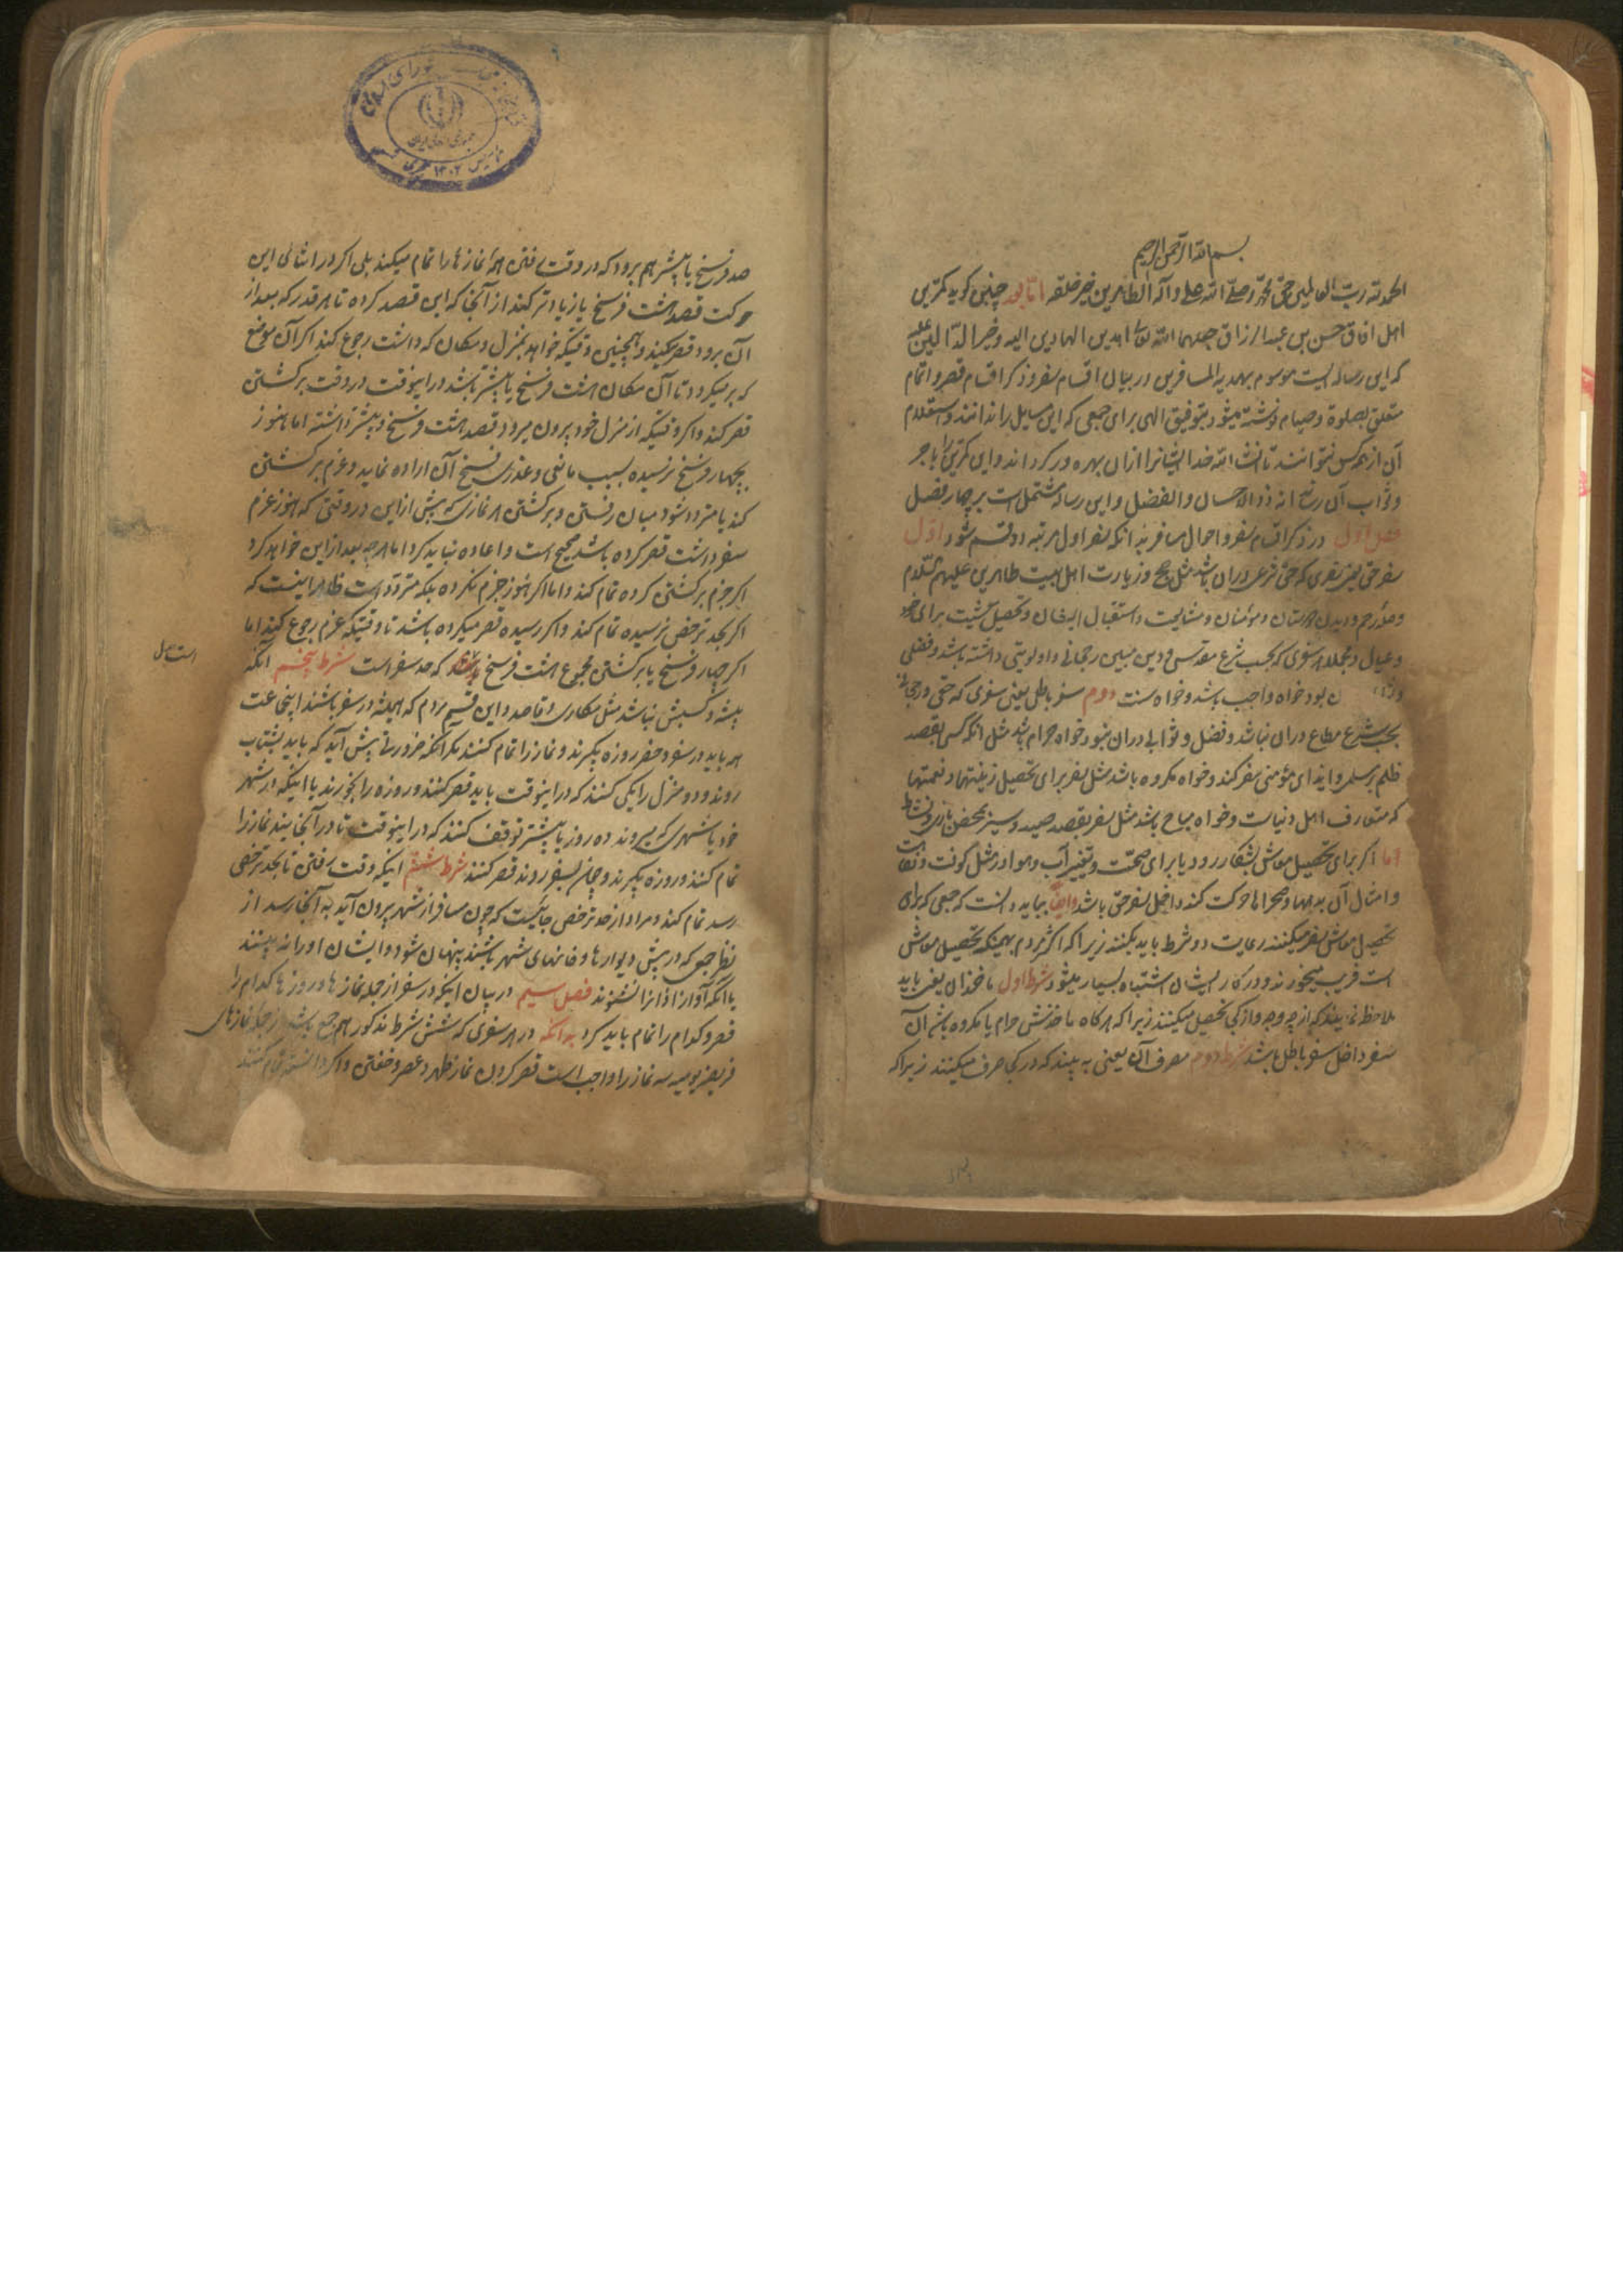 بسم الله الرحمن الرحیم
الحمد لله رب العالمین حق حمده و صلی الله علی و آله الطاهرین خیر خلقه اما بعد چنین کوید کمترین
اهل افاق حسن بن عبد الرزاق جعلهما الله تعالی من المهتدین الهادین الیه و خیر الدالین علیه
که این رساله ایست موسوم بهدیة المسافرین در بیان اقسام سفر و ذکر اقسام قصر و اتمام
متعلق بصلوة و صیام نوشته میشود بتوفیق الهی برای جمعی که این مسایل را ندانند و استعلام
آن از هر کس نتوانند تا انشاء الله خدا ایشانرا ازان بهره ور کرداند و این کمترین را باجر
و ثواب آن رساند انه ذو الاحسان و الفضل و این رساله مشتمل است بر چهار فصل
فصل اول در ذکر اقسام سفر و احوال مسافر بدانکه سفر اول مرتبه دو قسم شود اول
سفر حق یعنی سفری که حق شرعی دران باشد مثل حج و زیارت اهل بیت طاهرین علیهم السلام
و صله رحم و دیدن دوستان و مؤمنان و مشایعت و استقبال ایشان و تحصیل معیشت برای خود
و عیال و مجملا هر سفری که بحسب شرع مقدس و دین مبین رجحانی و اولویتی داشته باشد و فضلی
ن بود خواه واجب باشد و خواه سنت دوم سفر باطل یعنی سفری که حقی و رجحانی
بحسب شرع مطاع دران نباشد و فضل و ثوابی دران نبود خواه حرام باشد مثل انکه کسی بقصد
ظلم بر مسلم و ایذای مؤمنی سفر کند و خواه مکروه باشد مثل سفر برای تحصیل زینتها و نعمتها
که متعارف اهل دنیاست و خواه مباح باشد مثل سفر بقصد صید و سیر بمحض بازی و نشاط
اما اکر برای تحصیل معاش بشکار رود یا برای صحت و تغییر آب و هوا
و امثال آن بدهها و صحراها حرکت کند داخل سفر حق باشد و ایضا بباید دانست که جمعی که برای
تحصیل معاش سفر میکنند رعایت دو شرط باید بکنند زیرا که اکثر مردم بهمینکه تحصیل معاش
است فریب میخورند و در کار ایشان اشتباه بسیار میشود شرط اول ماخذ آن یعنی باید
ملاحظه نمایند که از چه وجه و از کی تحصیل میکنند زیرا که هر کاه ماخذش حرام یا مکروه باشد آن
سفر داخل سفر باطل باشد شرط دوم مصرف آن یعنی به بیند که در کی صرف میکنند زیرا که
صد فرسخ یا بیشتر هم برود که در وقت رفتن همه نمازها را تمام میکند بلی اکر در اثنای این
حرکت قصد هشت فرسخ یا زیادتر کند از آنجا که این قصد کرده تا هر قدر که بعد از
آن برود قصر میکند و همچنین وقتیکه خواهد بمنزل و مکان که داشت رجوع کند اکر آن موضع
که برمیکردد تا آن مکان هشت فرسخ یا بیشتر باشد در اینوقت در وقت برکشتن
قصر کند و اکر وقتیکه از منزل خود بیرون میرود قصد هشت فرسخ و بیشتر داشته اما هنوز
بچهار فرسخ نرسیده بسبب مانعی و عذری فسخ آن اراده نماید و عزم برکشتن
کند یا متردد شود میان رفتن و برکشتن هر نمازی که پیش از این در وقتی که هنوز عزم
سفر داشت قصر کرده باشد صحیح است و اعاده نباید کرد اما هر چه بعد از این خواهد کرد
اکر جزم برکشتن کرده تمام کند و اما اکر هنوز جزم نکرده بلکه متردد است ظاهر اینست که
اکر بحد ترخص نرسیده تمام کند و اکر رسیده قصر میکرده باشد تا وقتیکه عزم رجوع کند اما
اکر چهار فرسخ با برکشتن مجموع هشت فرسخ باشد که حد سفر است شرط پنجم انکه
پیشه و کسبش نباشد مثل مکاری و قاصد و این قسم مردم که همیشه در سفر باشند اینجماعت
هم باید در سفر و حضر روزه بکیرند و نماز را تمام کنند مکر انکه ضرورتی پیش آید که باید بشتاب
روند و دو منزل را یکی کنند که در اینوقت باید قصر کنند و روزه را بخورند یا اینکه در شهر
خود یا شهری که میروند ده روز یا بیشتر توقف کنند که در اینوقت تا در آنجایند نماز را
تمام کنند و روزه بکیرند و چون بسفر روند قصر کنند شرط ششم اینکه وقت رفتن تا بحد ترخص
رسد تمام کند و مراد از حد ترخص جائیست که چون مسافر از شهر بیرون آید به آنجا رسد از
نظر جمعی که در پیش دیوارها و خانهای شهر باشند پنهان شود و ایشان او را نه بینند
یا انکه آواز اذانرا نشنوند فصل سیم در بیان اینکه در سفر از جمله نمازها و روزها کدام را
قصر و کدام را تمام باید کرد بدانکه در هر سفری که شش شرط مذکور هم جمع باشد از جمله نمازهای
فریضه یومیه سه نماز را واجب است قصر کردن نماز ظهر و عصر و خفتن و اکر دانسته تمام کنند